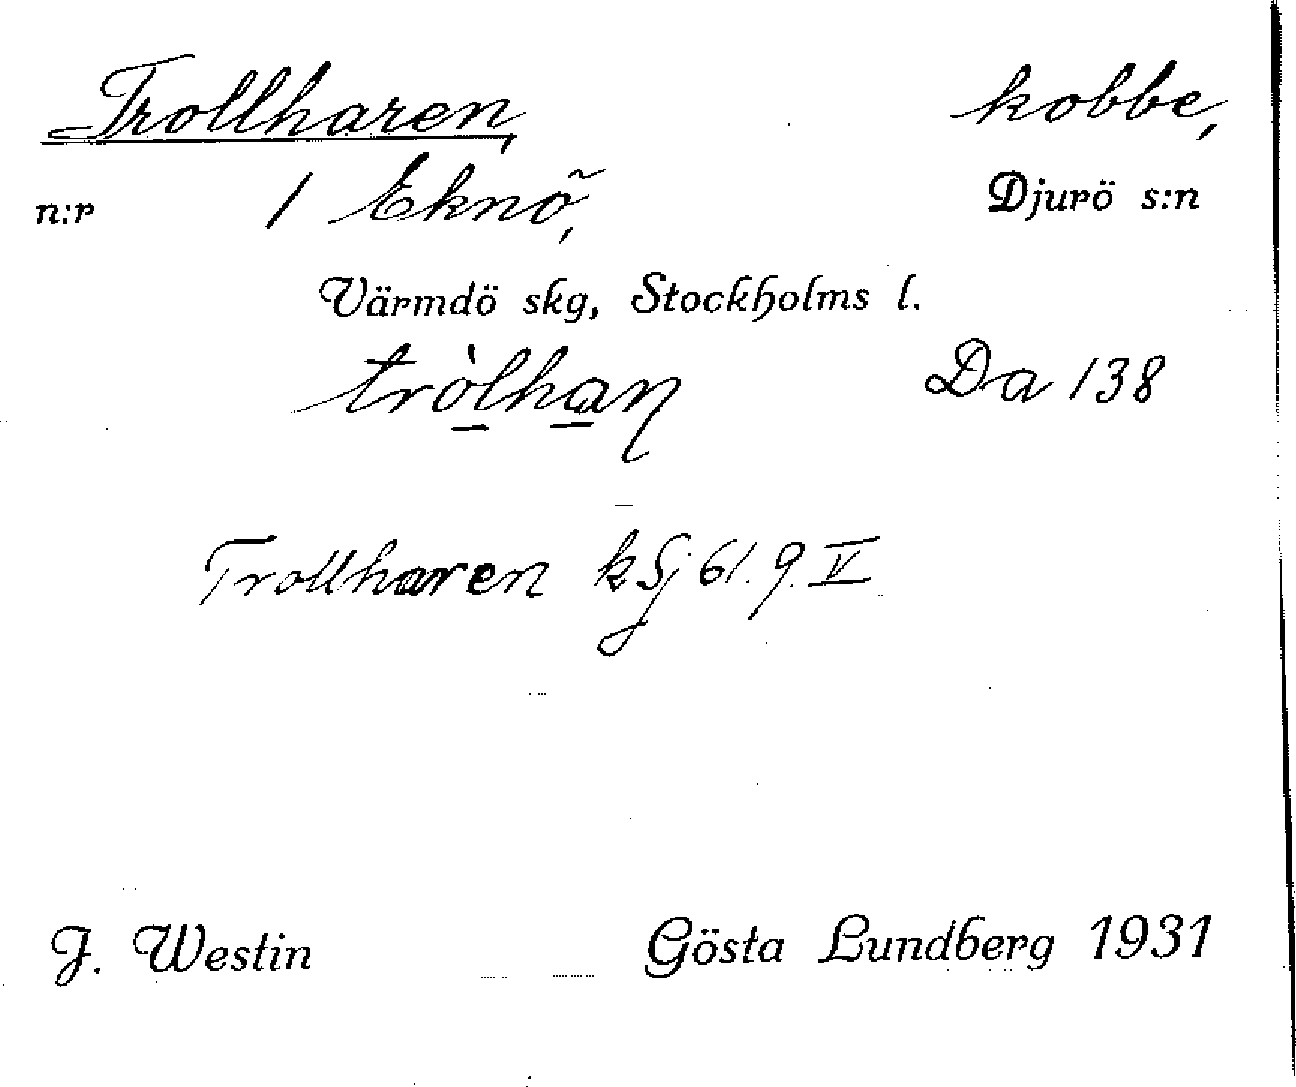 Trollharen, kobbe,
n:r 1 Eknö, Djurö s:n
Värmdö skg, Stockholms l.
tròlhaɳ Da 138
Trollharen k Sj 61. 9. V
J. Westin Gösta Lundberg 1931